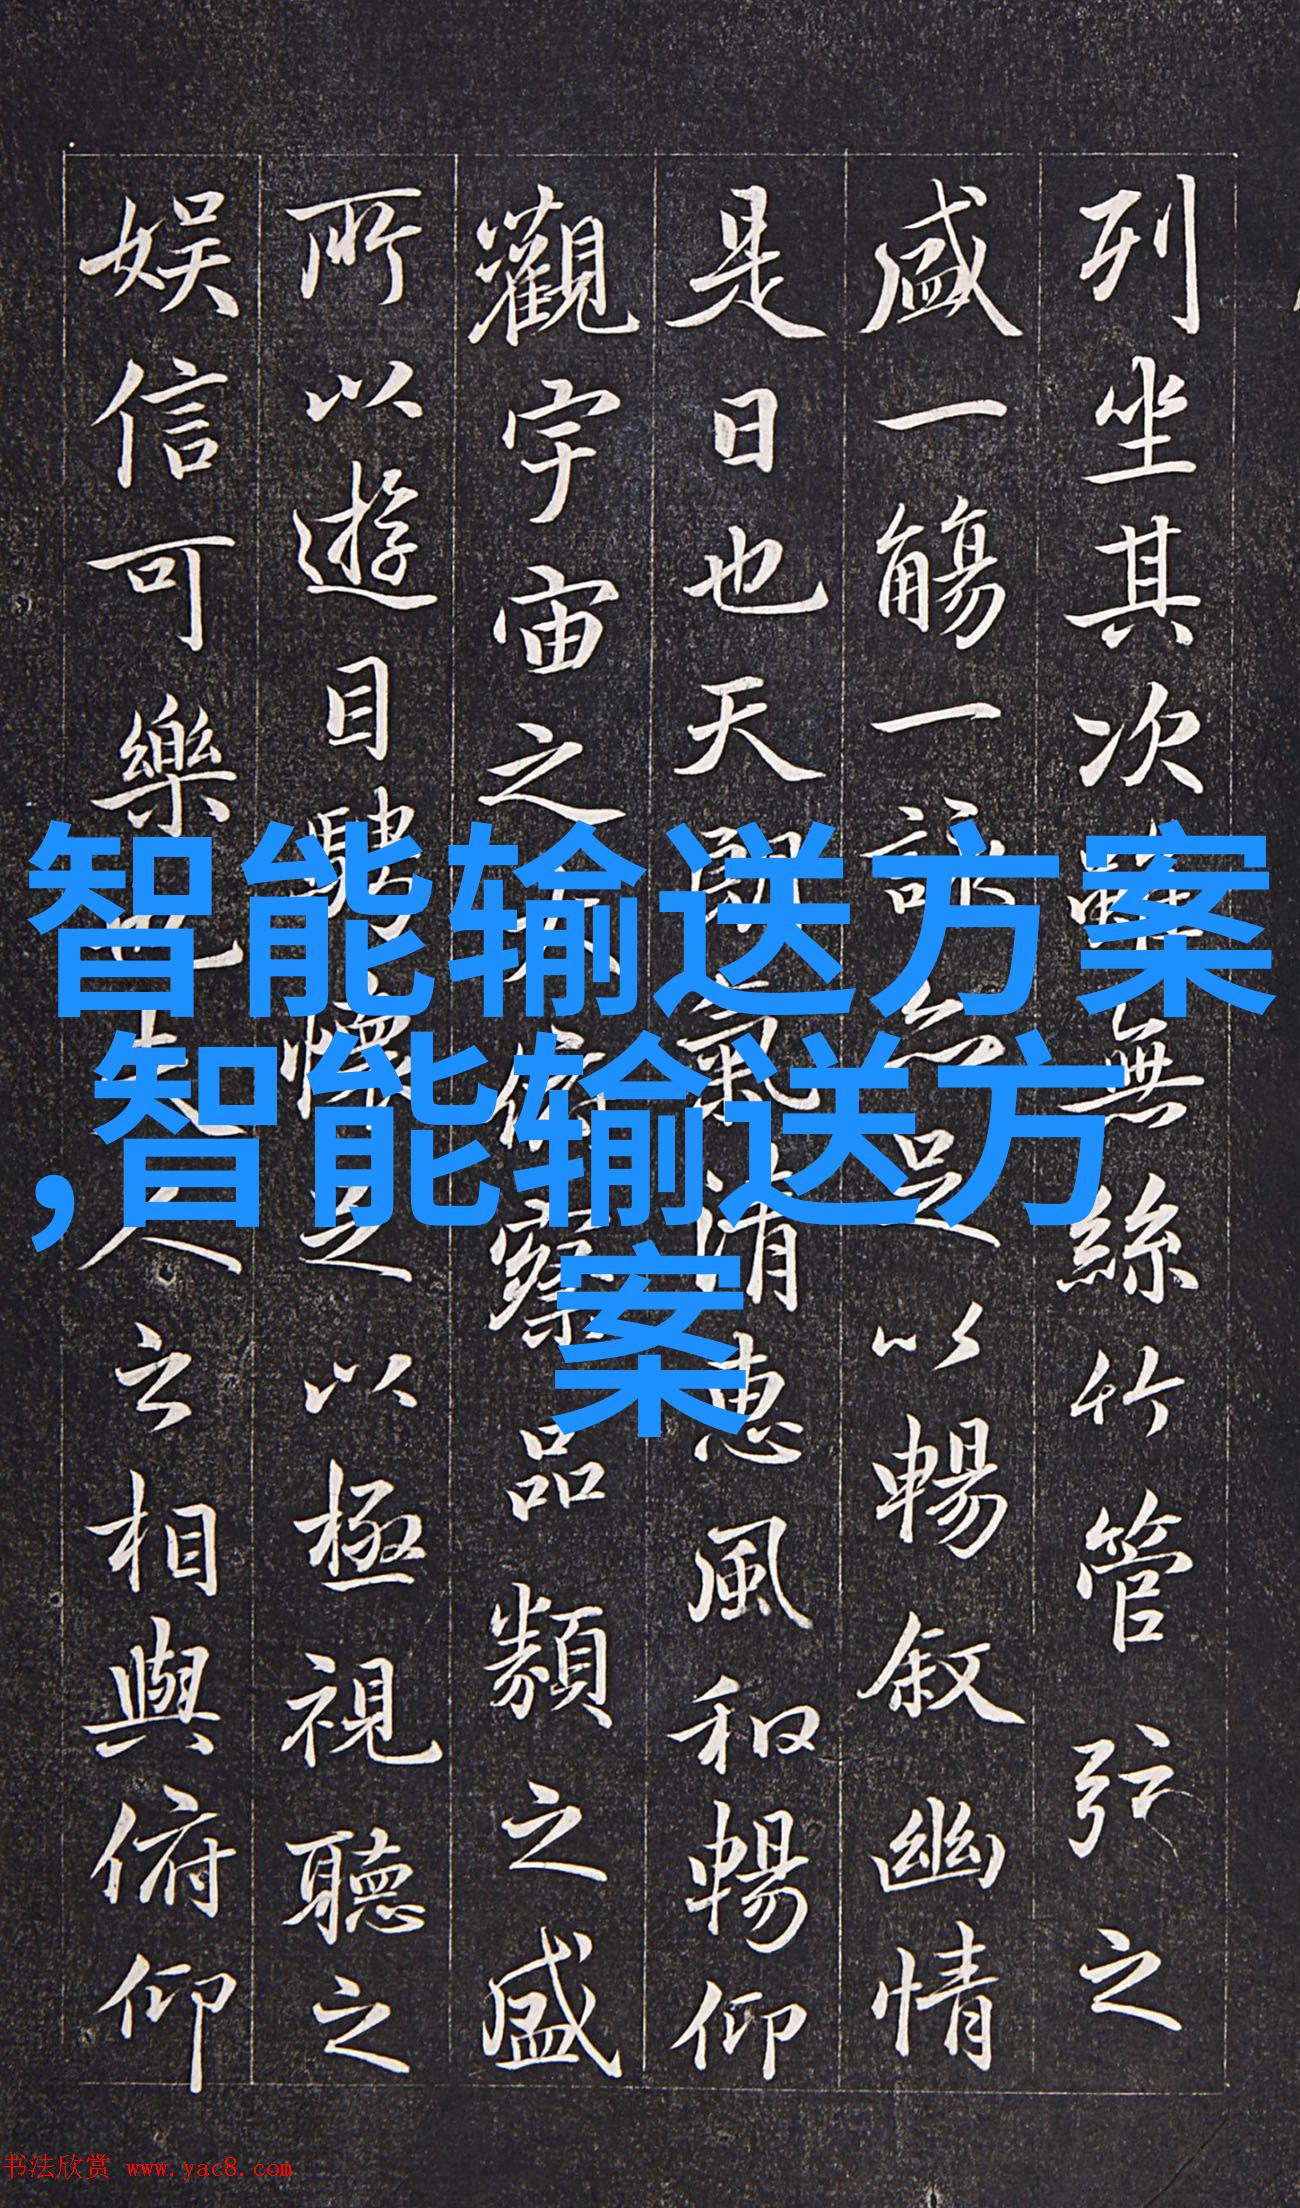 列坐其次雖無絲竹管弦之
盛一觴一詠亦足以暢敘幽情
是日也天朗氣清惠風和暢仰
觀宇宙之大俯察品類之盛
所以遊目騁懷足以極視聽之
娱信可樂也夫人之相與俯仰
智能输送方案
,智能输送方
案
书法欣赏 www.yac8.com